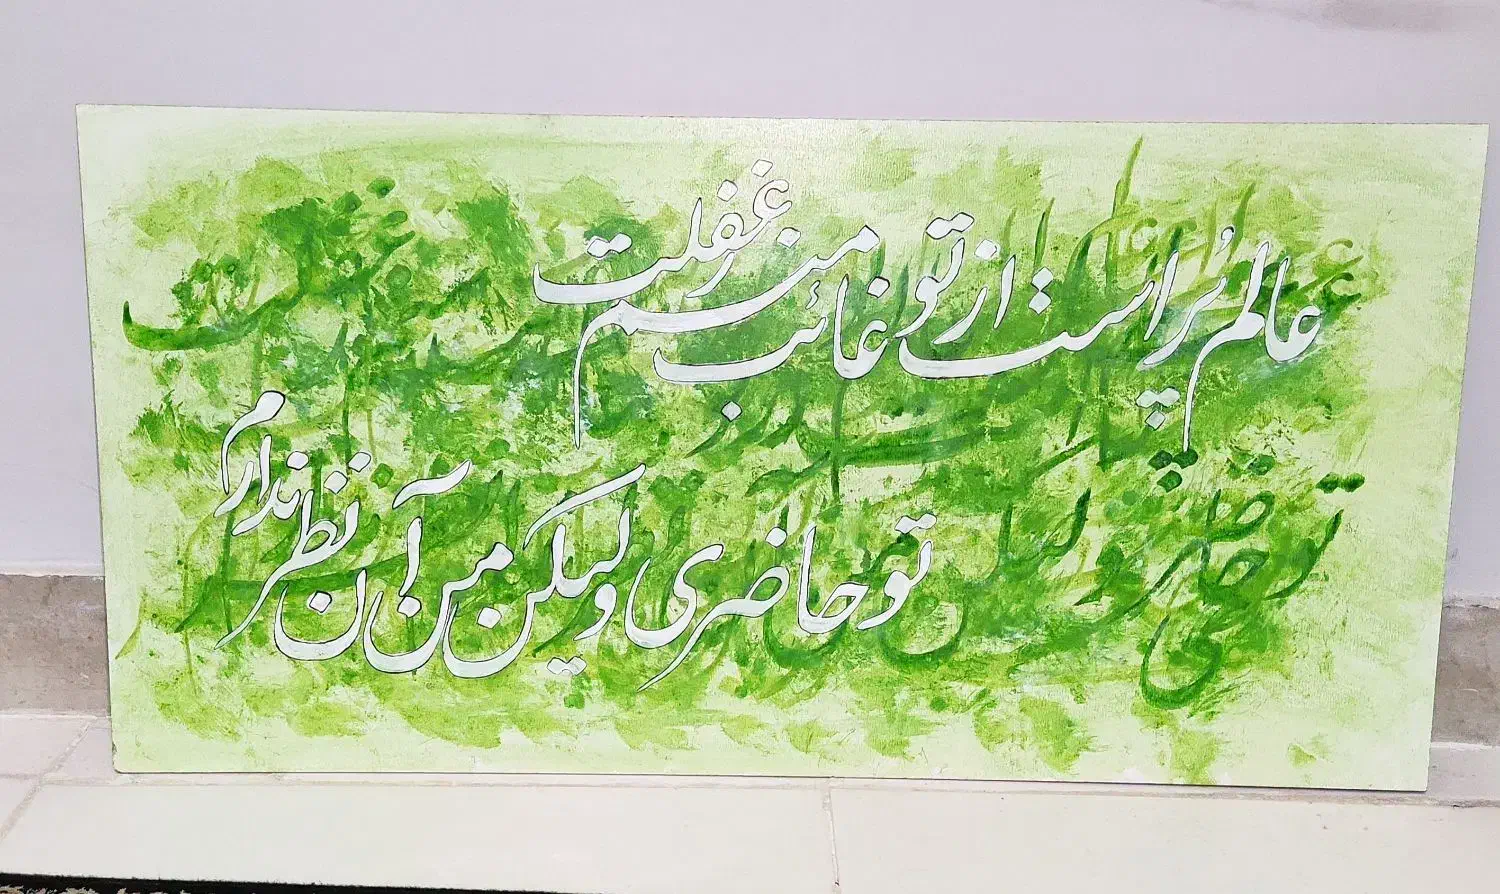 عالم پُر است از تو غائب منم ز غفلت
تو حاضری ولیکن من آن نظر ندارم